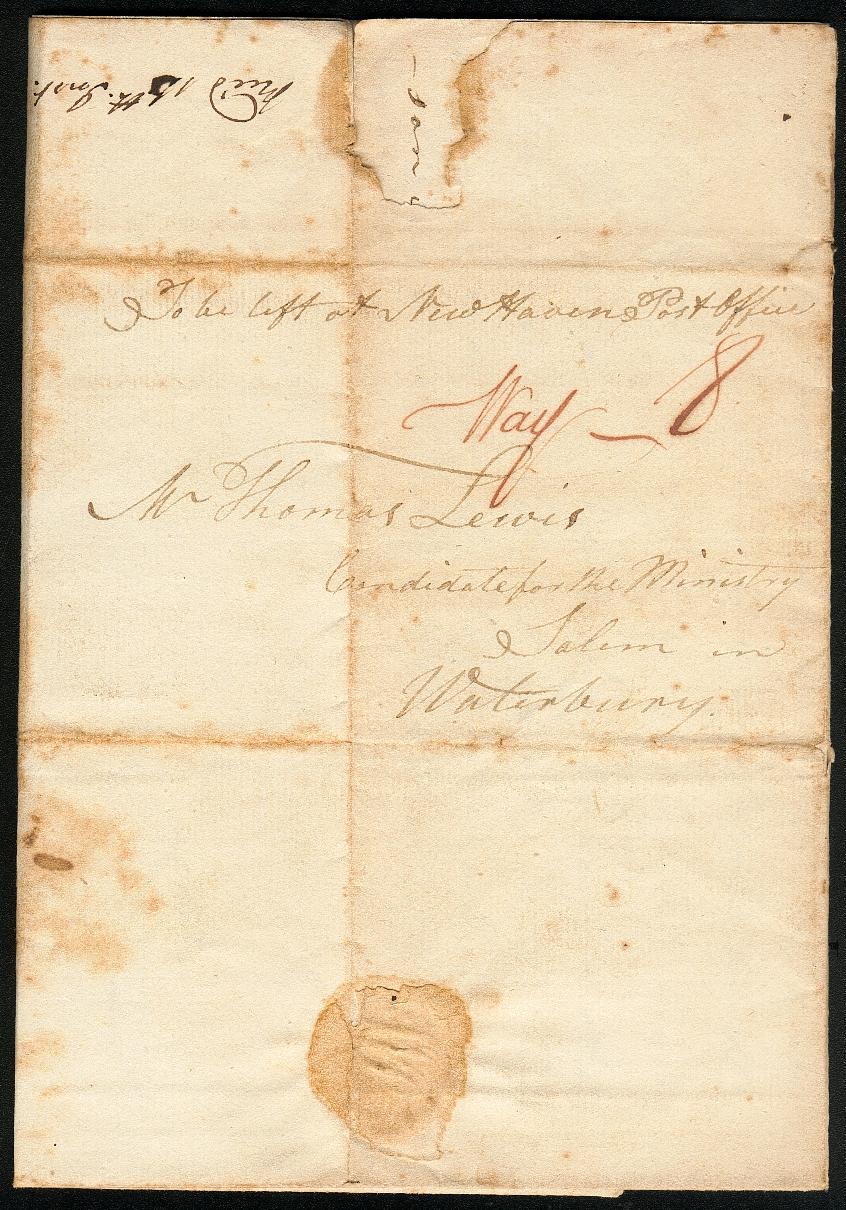 Rec'd 15th. Inst.
To be left at New Haven Post Office
Way — 8
Mr Thomas Lewis
Candidate for the Ministry
Salem in
Waterbury.